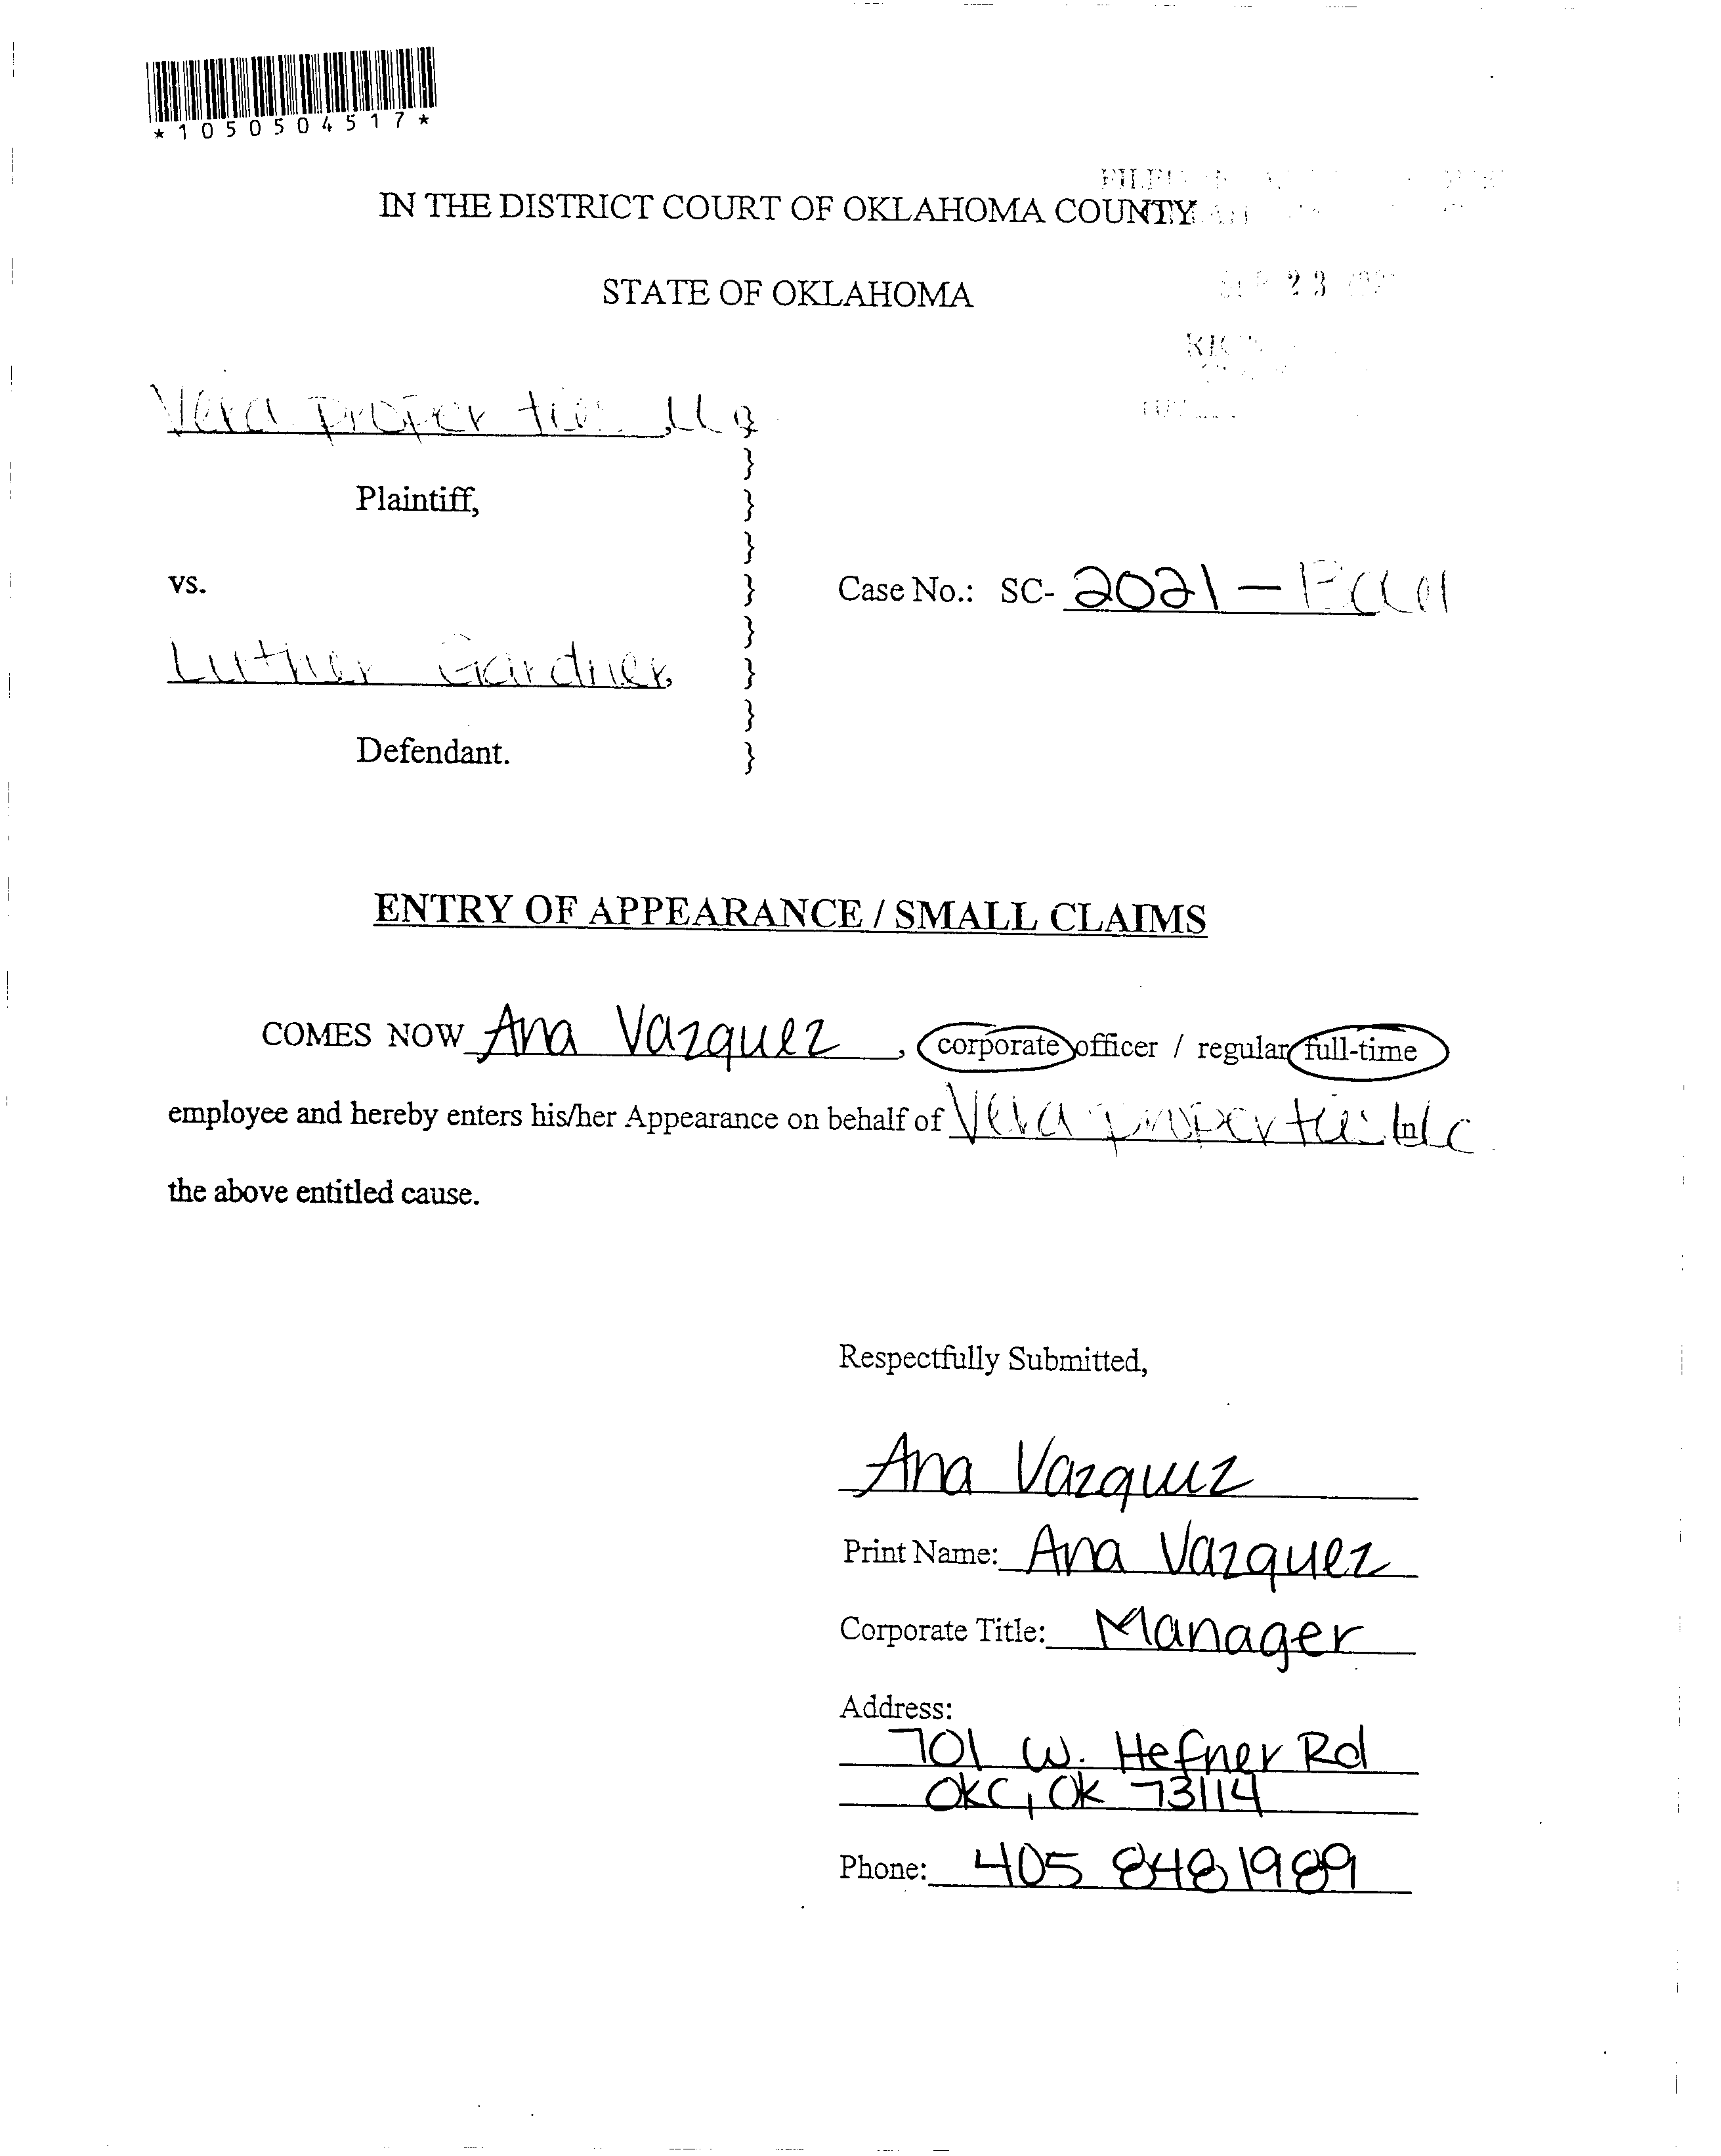 *1050504517*
IN THE DISTRICT COURT OF OKLAHOMA COUNTY
STATE OF OKLAHOMA
23
Vera properties, llc
}
Plaintiff,
}
}
}
vs.
}
Case No.: SC- 2021 -
}
Luther Gardner,
}
}
Defendant.
}
ENTRY OF APPEARANCE / SMALL CLAIMS
COMES NOW Ana Vazquez, corporate officer / regular full-time
employee and hereby enters his/her Appearance on behalf of Vera properties llc in
the above entitled cause.
Respectfully Submitted,
Ana Vazquez
Print Name: Ana Vazquez
Corporate Title: Manager
Address:
701 W. Hefner Rd
OKC, OK 73114
Phone: 405 848 1989